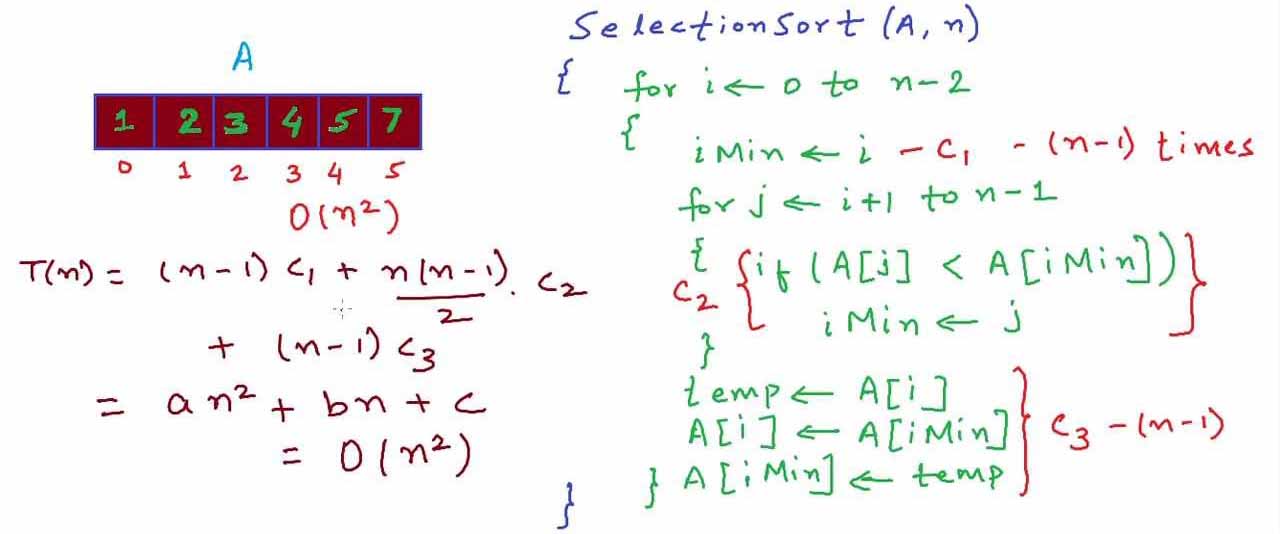 A
1 2 3 4 5 7
0 1 2 3 4 5
O(n²)
T(n) = (n-1) c₁ + n(n-1)/2 . c₂
+ (n-1) c₃
= an² + bn + c
= O(n²)
SelectionSort (A, n)
{ for i ← 0 to n-2
{ iMin ← i - c₁ - (n-1) times
for j ← i+1 to n-1
{ if (A[j] < A[iMin]) }
c₂ { iMin ← j
}
temp ← A[i]
A[i] ← A[iMin] } c₃ - (n-1)
} A[iMin] ← temp
}